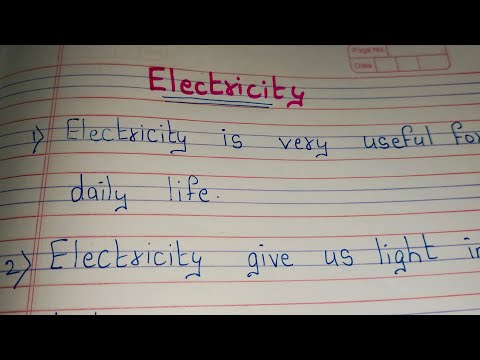 Page No.
Date
Electricity
1) Electricity is very useful for
daily life.
2) Electricity give us light in